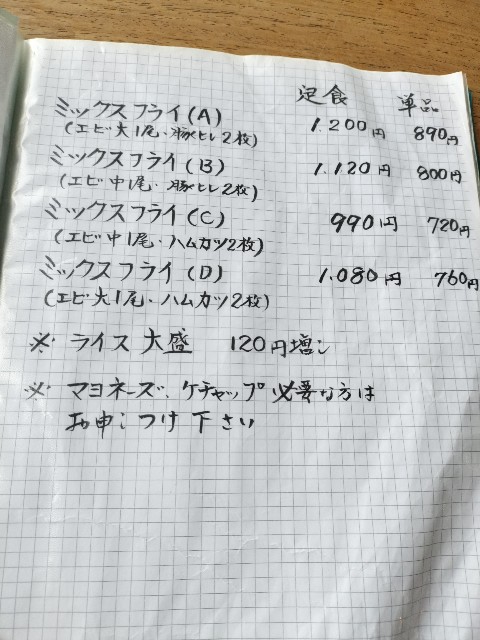 定食 単品
ミックスフライ(A) 1.200円 890円
(エビ大1尾・豚ヒレ2枚)
ミックスフライ(B) 1.120円 800円
(エビ中1尾・豚ヒレ2枚)
ミックスフライ(C) 990円 720円
(エビ中1尾・ハムカツ2枚)
ミックスフライ(D) 1.080円 760円
(エビ大1尾・ハムカツ2枚)
※ ライス大盛 120円増し
※ マヨネーズ、ケチャップ必要な方は
お申しつけ下さい